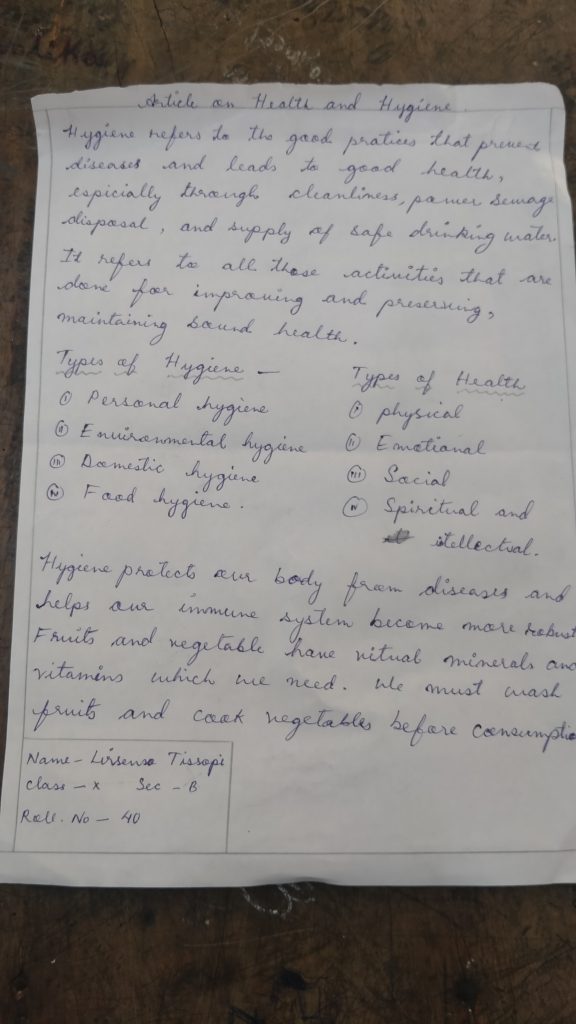 Article on Health and Hygiene.
Hygiene refers to the good pratices that prevent
diseases and leads to good health,
espicially through cleanliness, power sewage
disposal, and supply of safe drinking water.
It refers to all those activities that are
done for improving and preserving,
maintaining sound health.
Types of Hygiene —
(i) Personal hygiene
(ii) Environmental hygiene
(iii) Domestic hygiene
(iv) Food hygiene.
Types of Health
(i) physical
(ii) Emotional
(iii) Social
(iv) Spiritual and
itellectual.
Hygiene protects our body from diseases and
helps our immune system become more robust
Fruits and vegetable have vitual minerals and
vitamins which we need. We must wash
fruits and cook vegetables before consumptio
Name - Tissopi
Class - X Sec - B
Roll. No - 40